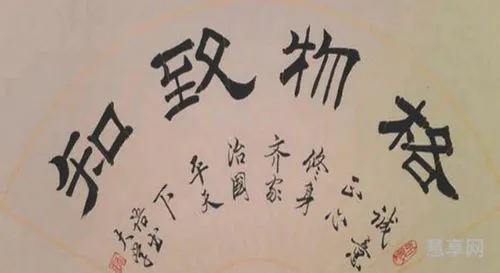 格物致知
诚意
正心
修身
齐家
治国
平天
下
大学
慧享网